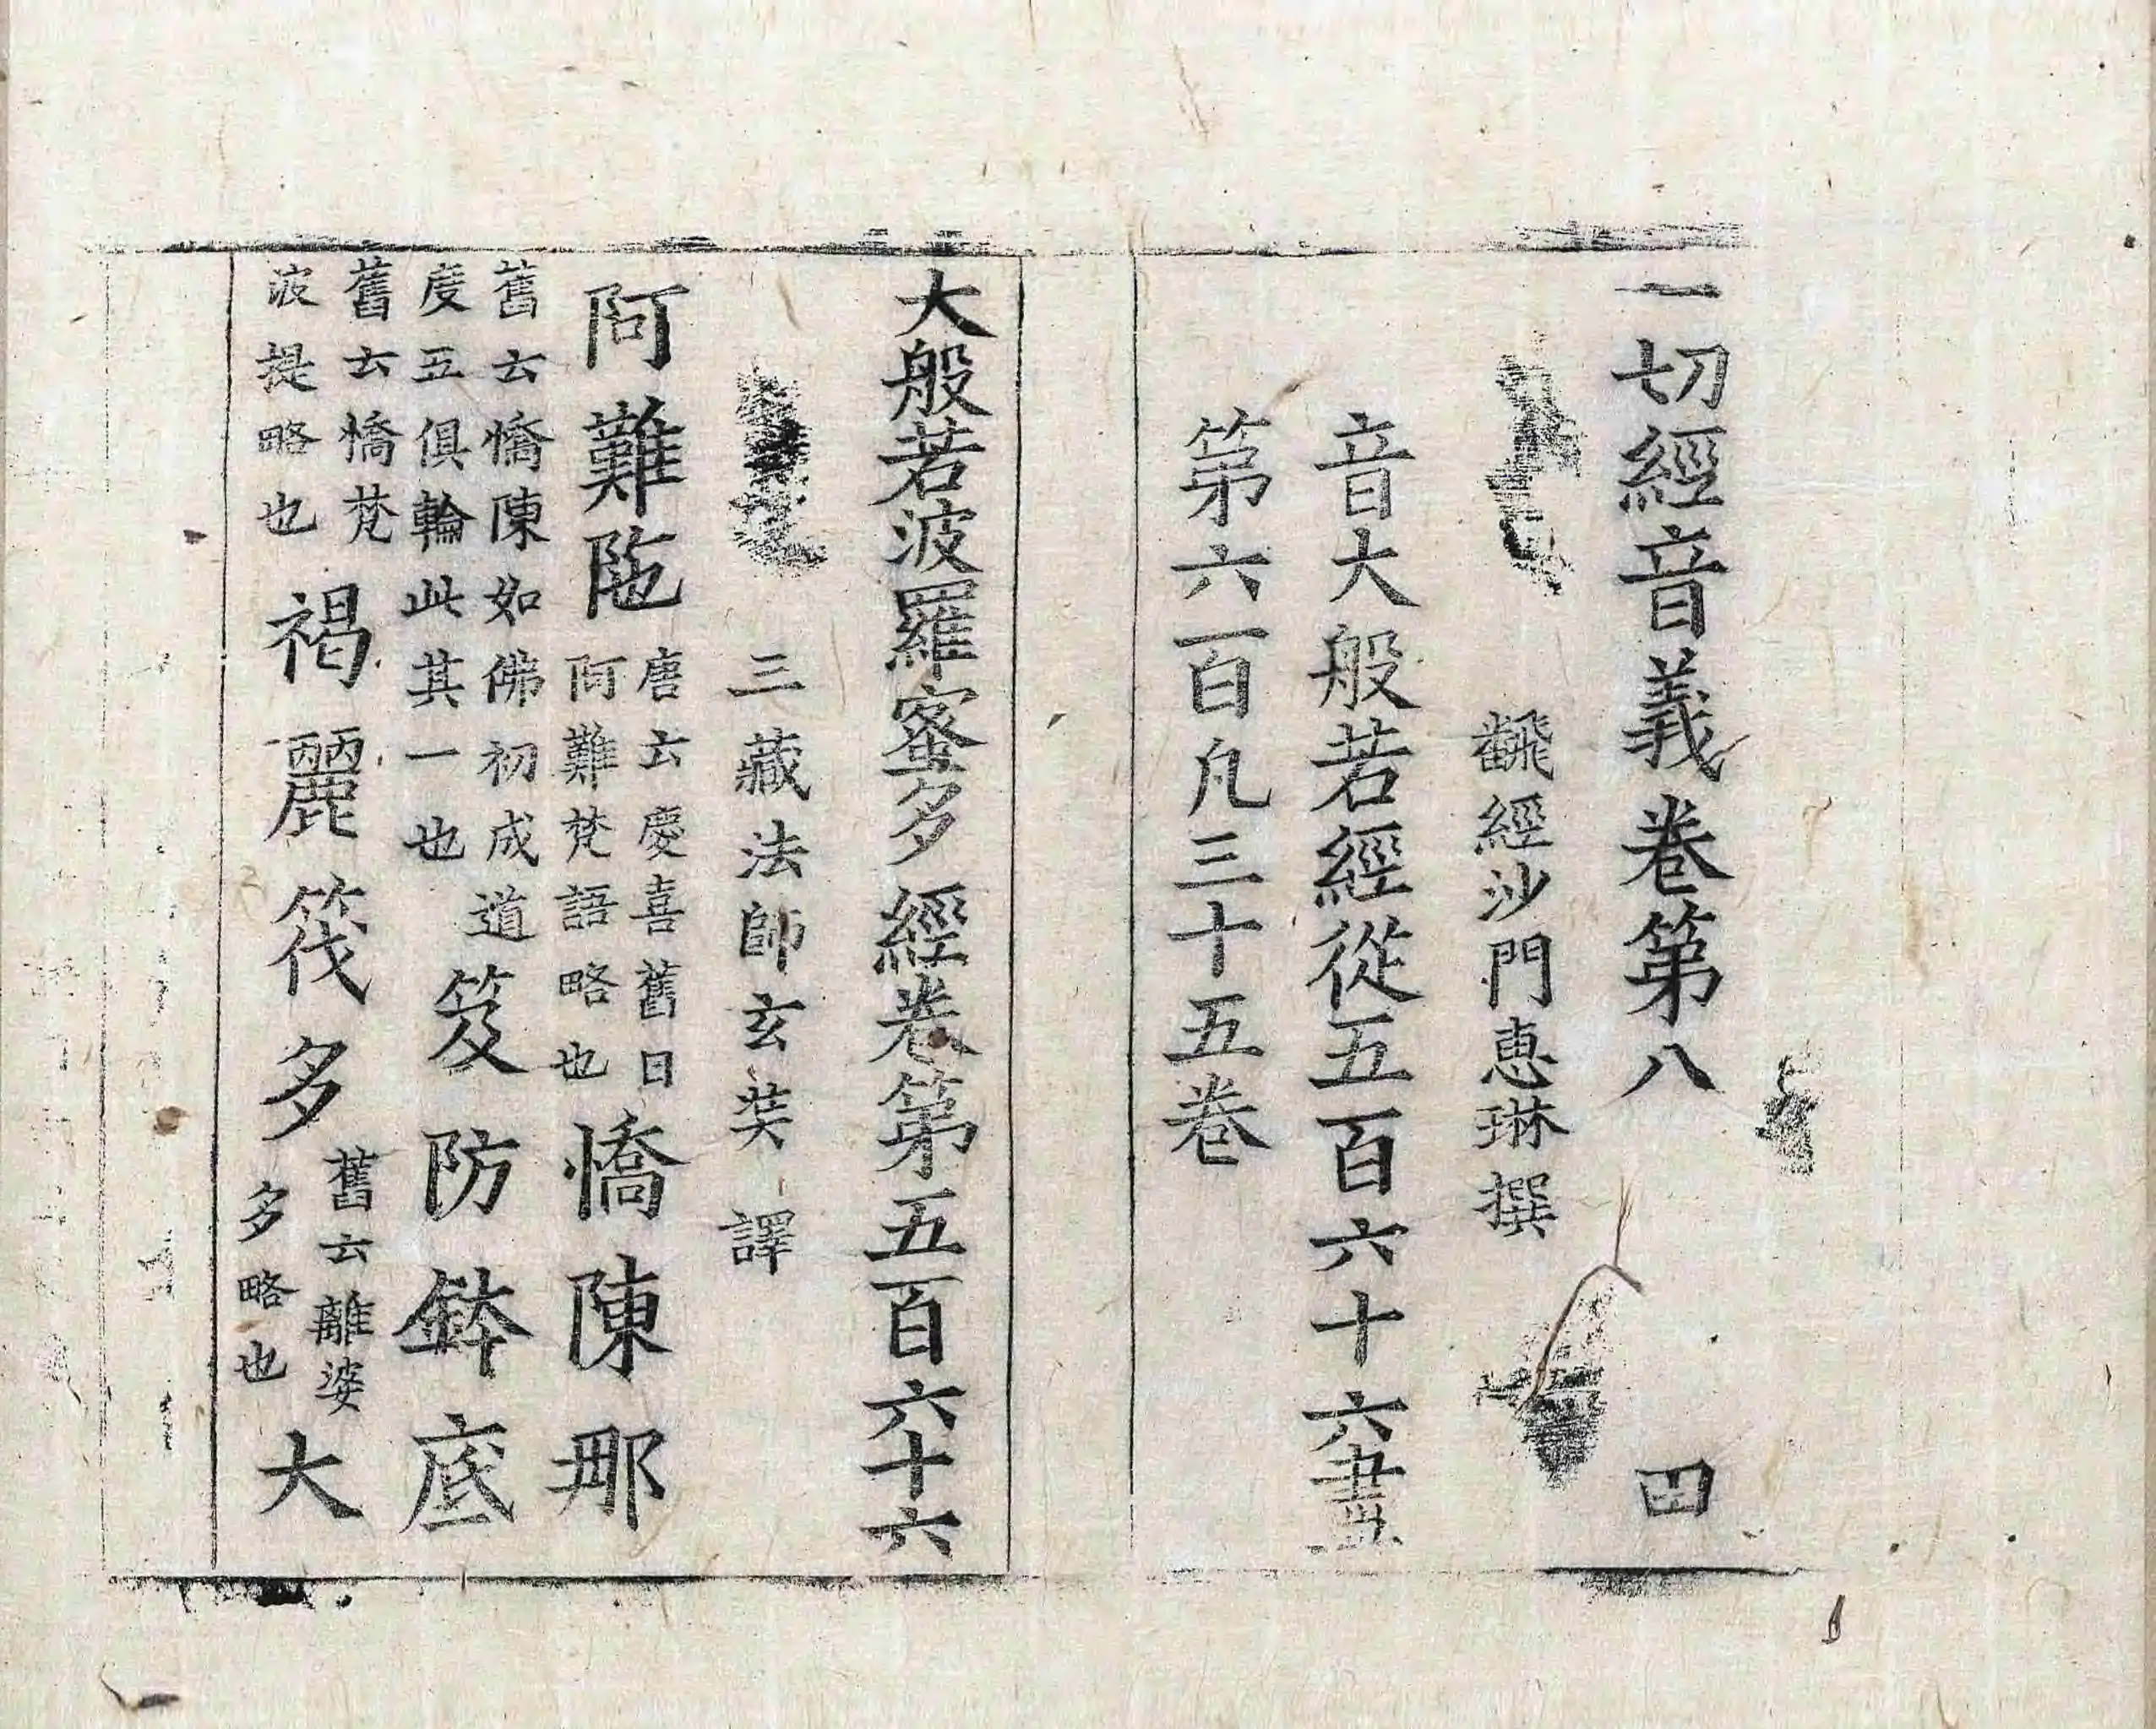 一切經音義卷第八 田
飜經沙門惠琳撰
音大般若經從五百六十六盡
第六百凡三十五卷
大般若波羅蜜多經卷第五百六十六
三藏法師玄奘譯
阿難陁唐云慶喜舊曰阿難梵語略也憍陳那
舊云憍陳如佛初成道度五俱輪此其一也笈防鉢底
舊云憍梵波提略也褐麗筏多舊云離婆多略也大